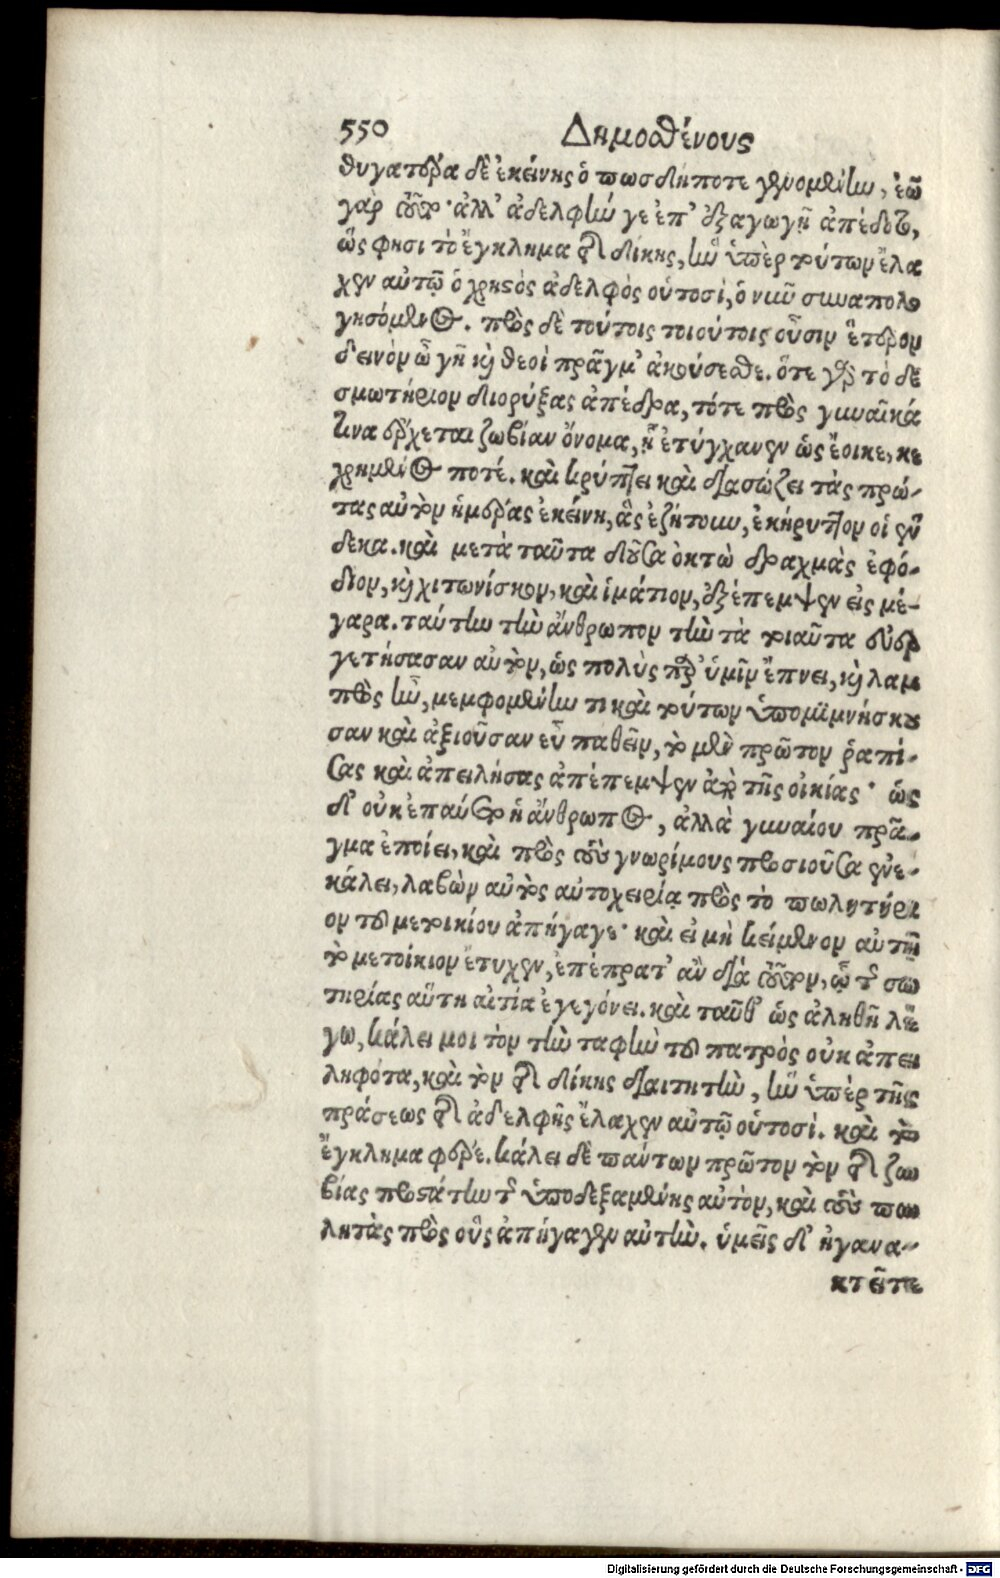 550 Δημοσθένους
θυγατέρα δὲ ἐκείνης ὁ πωσδήποτε γενομένην, ἐῶ
γὰρ τοῦτο· ἀλλ' ἀδελφὴν γε ἐπ' ἐξαγωγῇ ἀπέδοτο,
ὥς φησι τὸ ἔγκλημα τῆς δίκης, ἣν ὑπὲρ τούτων ἔλα
χεν αὐτῷ ὁ χρηστὸς ἀδελφὸς οὑτοσί, ὁ νυνὶ συναπολο
γησόμενος. πρὸς δὲ τούτοις τοιούτοις οὖσιν ἕτερον
δεινὸν ὦ γῆ καὶ θεοὶ πρᾶγμ' ἀκούσεσθε. ὅτε γὰρ τὸ δε
σμωτήριον διορύξας ἀπέδρα, τότε πρὸς γυναῖκά
τινα ἔρχεται ζωβίαν ὄνομα, ᾗ ἐτύγχανεν ὡς ἔοικε, κε
χρημένος ποτέ. καὶ κρύπτει καὶ διασώζει τὰς πρώ-
τας αὐτὸν ἡμέρας ἐκείνη, ἃς ἐζήτουν, ἐκήρυττον οἱ ἕν
δεκα. καὶ μετὰ ταῦτα δοῦσα ὀκτὼ δραχμὰς ἐφό-
διον, καὶ χιτωνίσκον, καὶ ἱμάτιον, ἐξέπεμψεν εἰς μέ-
γαρα. ταύτην τὴν ἄνθρωπον τὴν τὰ τοιαῦτα εὐερ
γετήσασαν αὐτὸν, ὡς πολὺς παρ' ὑμῖν ἔπνει, καὶ λαμ
πρὸς ἦν, μεμφομένην τι καὶ τούτων ὑπομιμνήσκου
σαν καὶ ἀξιοῦσαν εὖ παθεῖν, τὸ μὲν πρῶτον ῥαπί-
σας καὶ ἀπειλήσας ἀπέπεμψεν ἀπὸ τῆς οἰκίας· ὡς
δ' οὐκ ἐπαύετο ἡ ἄνθρωπος, ἀλλὰ γυναίου πρᾶ-
γμα ἐποίει, καὶ πρὸς τοὺς γνωρίμους προσιοῦσα ἐνε-
κάλει, λαβὼν αὐτὸς αὐτοχειρίᾳ πρὸς τὸ πωλητήρι
ον τοῦ μετοικίου ἀπήγαγε· καὶ εἰ μὴ κείμενον αὐτῇ
τὸ μετοίκιον ἔτυχεν, ἐπέπρατ' ἂν διὰ τοῦτον, ᾧ τῆς σω
τηρίας αὕτη αἰτία ἐγεγόνει. καὶ ταῦθ' ὡς ἀληθῆ λέ
γω, κάλει μοι τὸν τὴν ταφὴν τοῦ πατρὸς οὐκ ἀπει
ληφότα, καὶ τὸν τῆς δίκης διαιτητὴν, ἣν ὑπὲρ τῆς
πράσεως τῆς ἀδελφῆς ἔλαχεν αὐτῷ οὑτοσί. καὶ τὸ
ἔγκλημα φέρε. κάλει δὲ πάντων πρῶτον τὸν τῆς ζω
βίας προστάτην τῆς ὑποδεξαμένης αὐτὸν, καὶ τοὺς πω
λητὰς πρὸς οὓς ἀπήγαγεν αὐτὴν. ὑμεῖς δ' ἠγανα-
κτεῖτε
Digitalisierung gefördert durch die Deutsche Forschungsgemeinschaft - DFG